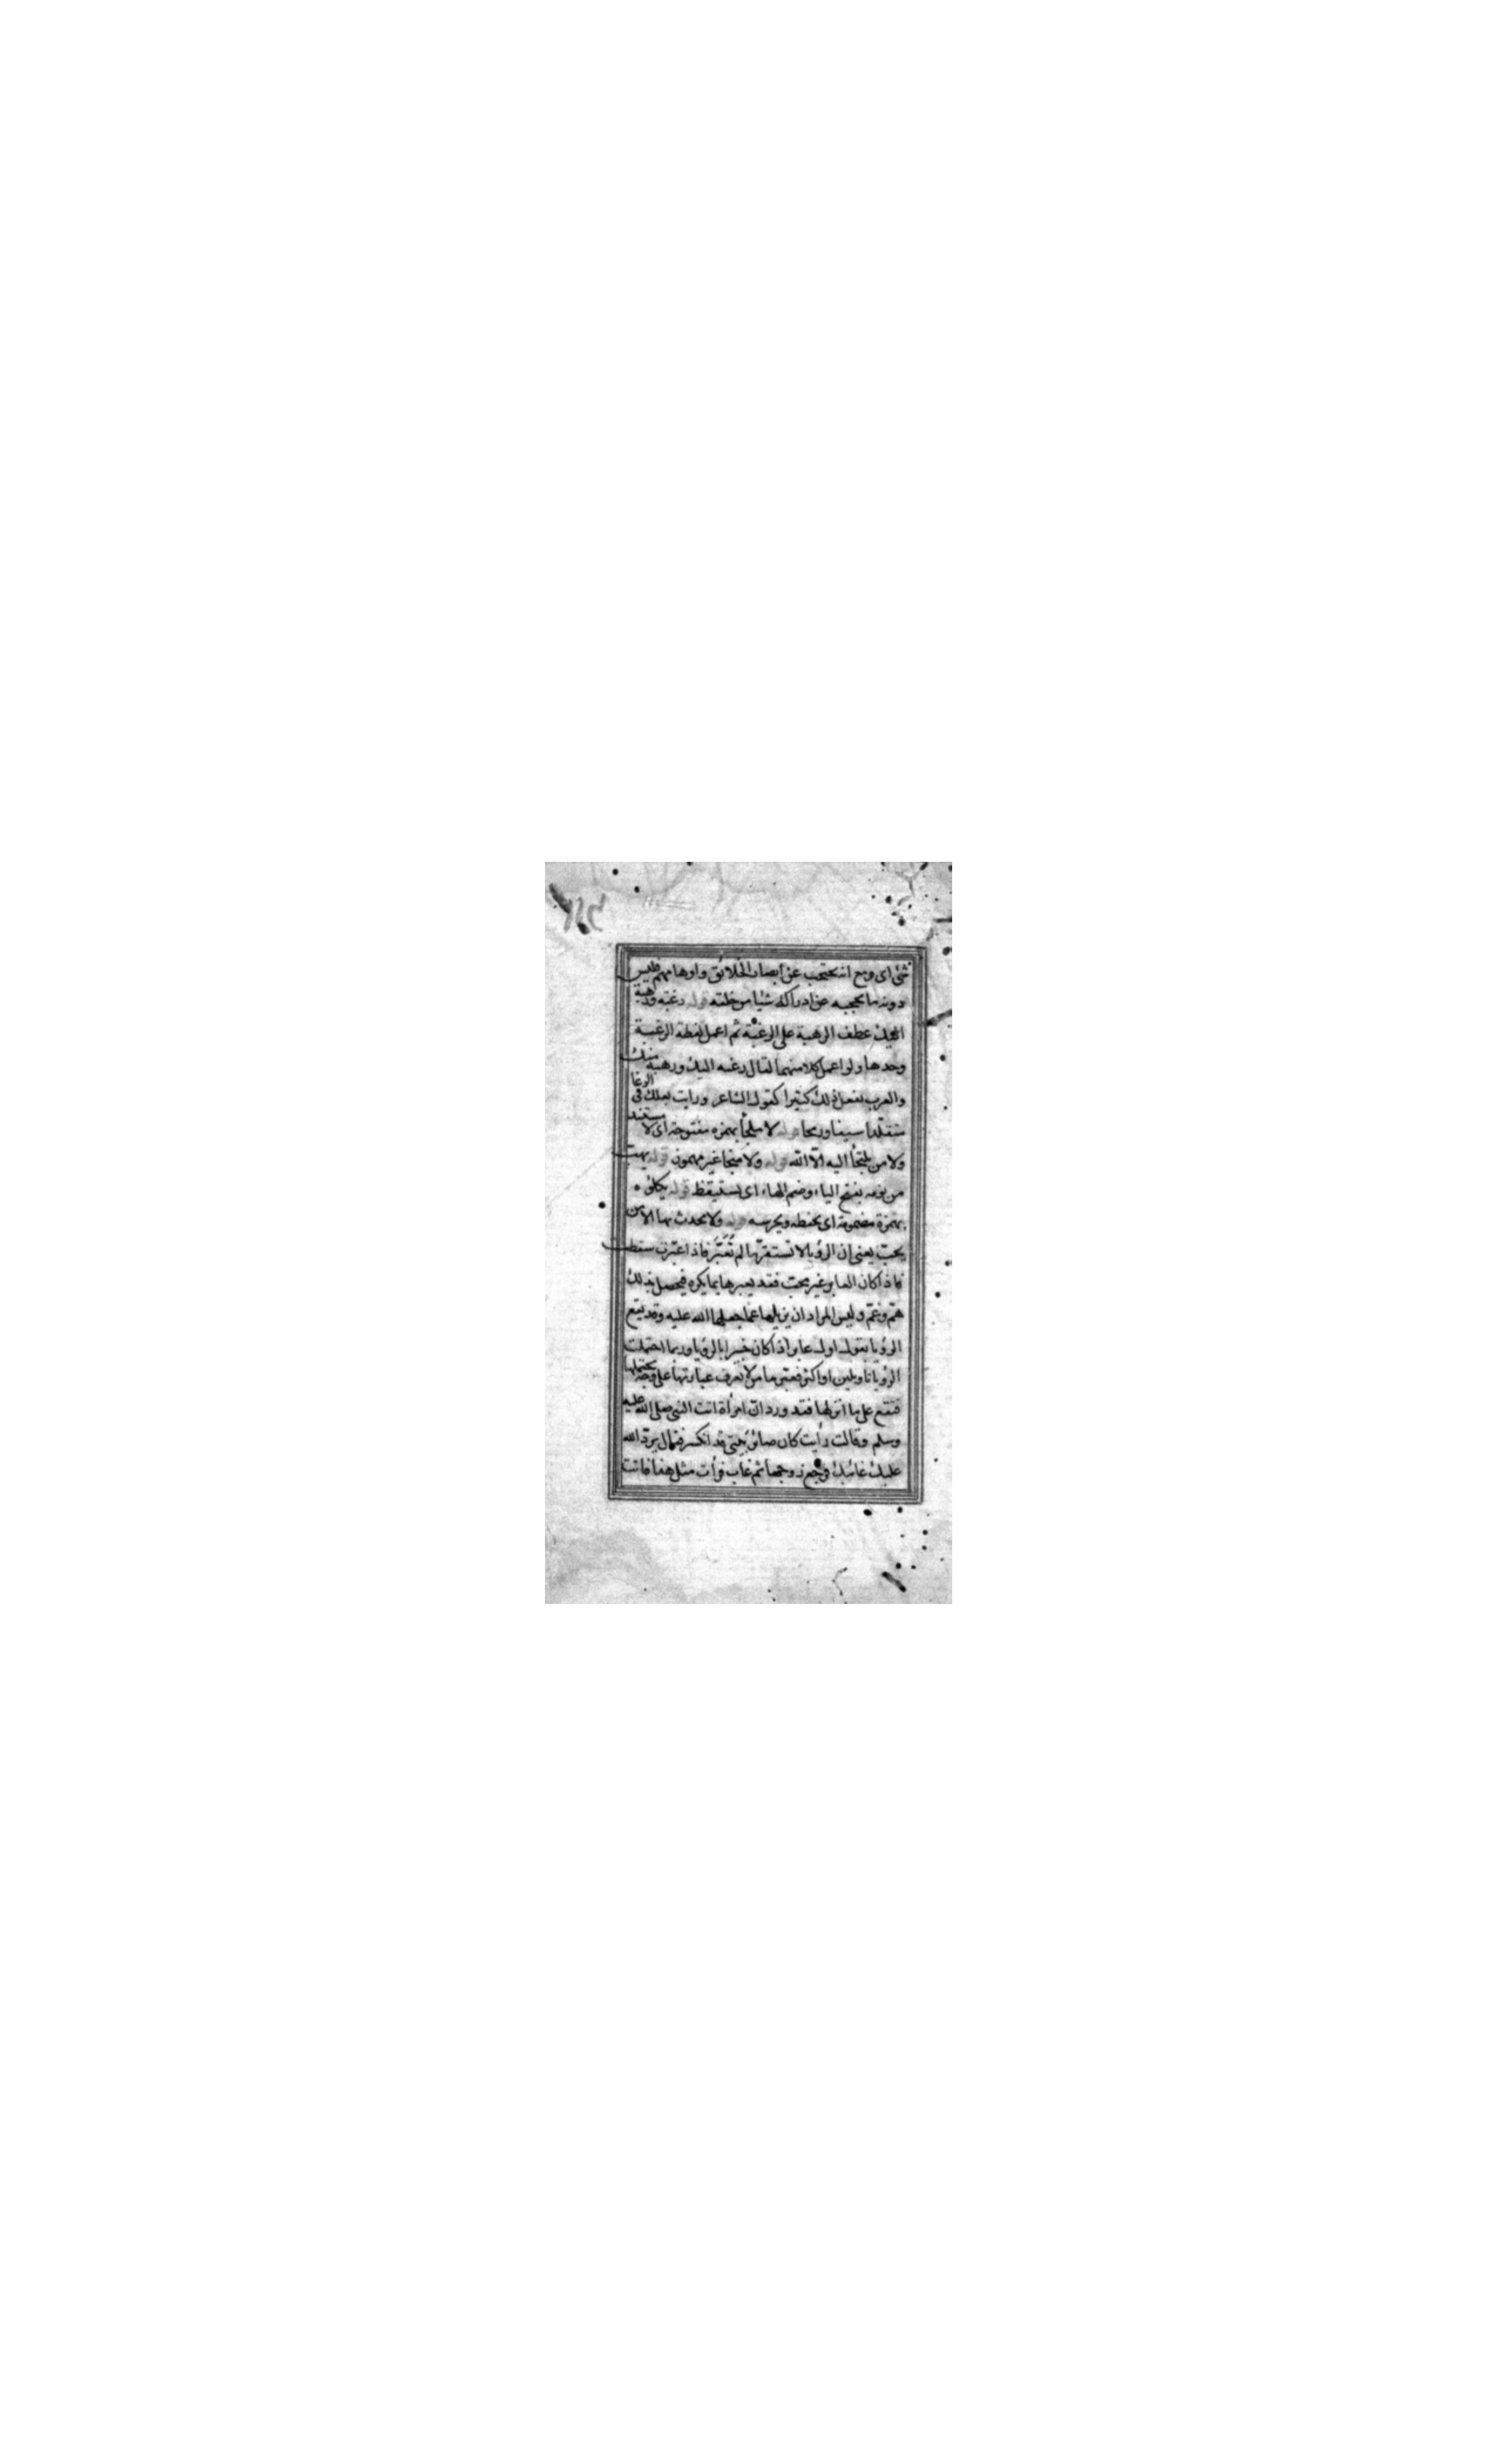 شئ اى ومع انه يحتجب عن ابصار الخلائق واوهامهم فليس
دونه ما يحجبه عن ادراكه شيا من خلقه قوله رغبة ورهبة
اليك عطف الرهبة على الرغبة ثم اعمل لفظه الرغبة
وحدها ولو اعمل كلا منهما لقال رغبة اليك ورهبة منك
والعرب تفعل ذلك كثيرا كقول الشاعر ورايت بعلك فى الوغا
متقلدا سيفا ورمحا قوله لا ملجأ بهمزه مفتوحة اى لا مستند
ولا من يلتجأ اليه الّا الله قوله ولا منجا غير مهموز قوله يهبّ
من نومه بفتح الياء وضم الهاء اى يستيقظ قوله يكلؤه
بهمزة مضمومة اى يحفظه ويحرسه قوله ولا يحدث بها الا من
يحبّ يعنى ان الرؤيا لا تستقرّ ما لم تُعَبَّر فاذا عبّرت سقطت
فاذا كان العابر غير محبّ فقد يعبرها بما يكره فيحصل بذلك
همّ وغمّ وليس المراد ان يزيلها عما جعلها الله عليه وقد يقع
الرؤيا بقول اول عابر اذا كان خبيرا بالرؤيا وربما احتملت
الرؤيا تاويلين او اكثر فعبّرها من لا يعرف عبارتها على وجه يحتملها
فتقع على ما اوّلها فقد ورد انّ امرأة اتت النبى صلى الله عليه
وسلم وقالت رأيت كان جائز بيتى قد انكسر فقال يردّ الله
عليك غائبك فرجع زوجها ثم غاب فرأت مثل هذا فاتت